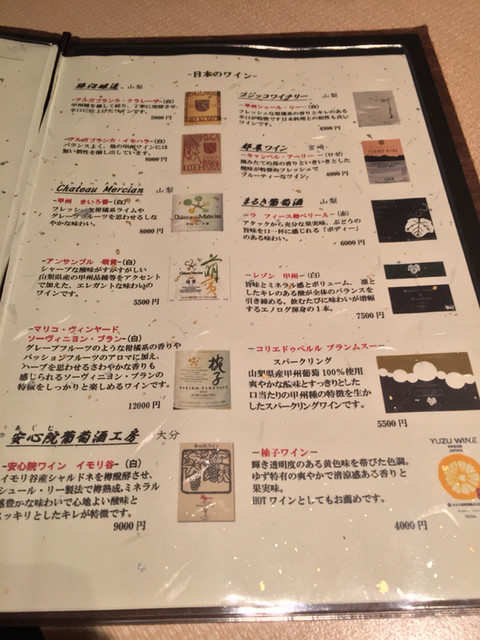 -日本のワイン-
勝沼醸造 山梨
-アルガブランカ・クラレーザ-(白)
甲州種を優しく絞り、丁寧に発酵させ、
辛口に仕上げたワインです。
5000円
-アルガブランカ・イセハラ-(白)
8000円
Chateau Mercian 山梨
-甲州 きいろ香-(白)
フレッシュな柑橘系ライムや
グレープフルーツを思わせるしな
やかな味わい。
8000円
-アンサンブル 萌黄-(白)
シャープな酸味がすがすがしい
山梨県産の甲州品種等をアクセント
で加えた、エレガントな味わいの
ワインです。
5500円
-マリコ・ヴィンヤード
ソーヴィニヨン・ブラン-(白)
グレープフルーツのような柑橘系の香りや
パッションフルーツのアロマに加え、
ハーブを思わせるさわやかな香りも
感じられるソーヴィニヨン・ブランの
特徴をしっかりと楽しめるワインです。
12000円
あじむ
安心院葡萄酒工房 大分
-安心院ワイン イモリ谷-(白)
イモリ谷産シャルドネを樽発酵させ、
シュール・リー製法で樽熟成。ミネラル
感豊かな味わいで心地よい酸味と
スッキリとしたキレが特徴です。
9000円
フジッコワイナリー 山梨
-甲州シュール・リー-(白)
フレッシュな柑橘系の香りとキレのある
辛口が特徴です日本料理との相性も良い
ワインです。
4500円
都農ワイン 宮崎
-キャンベル・アーリー-(ロゼ)
摘みたての苺の香りといきいきとした
酸味が特徴的フレッシュで
フルーティーなワイン。
4000円
まるき葡萄酒 山梨
-ラ フィーユ樽ベリーA-(赤)
アタックから充分な果実味、ぶどうの
旨味を口一杯に感じられる「ボディー」
のある味わい。
6000円
-レゾン 甲州-(白)
旨味とミネラル感とボリューム、凛と
したキレのある酸が全体のバランスを
引き締める。飲むたびに味わいが増幅
するエノログ渾身の1本。
7500円
-コリエドゥペルル ブランムスー-
スパークリング
山梨県産甲州葡萄100%使用
爽やかな酸味とすっきりとした
口当たりの甲州種の特徴を生か
したスパークリングワインです。
5500円
-柚子ワイン-
輝き透明度のある黄色味を帯びた色調。
ゆず特有の爽やかで清涼感ある香りと
果実味。
HOTワインとしてもお薦めです。
4000円
YUZU WINE